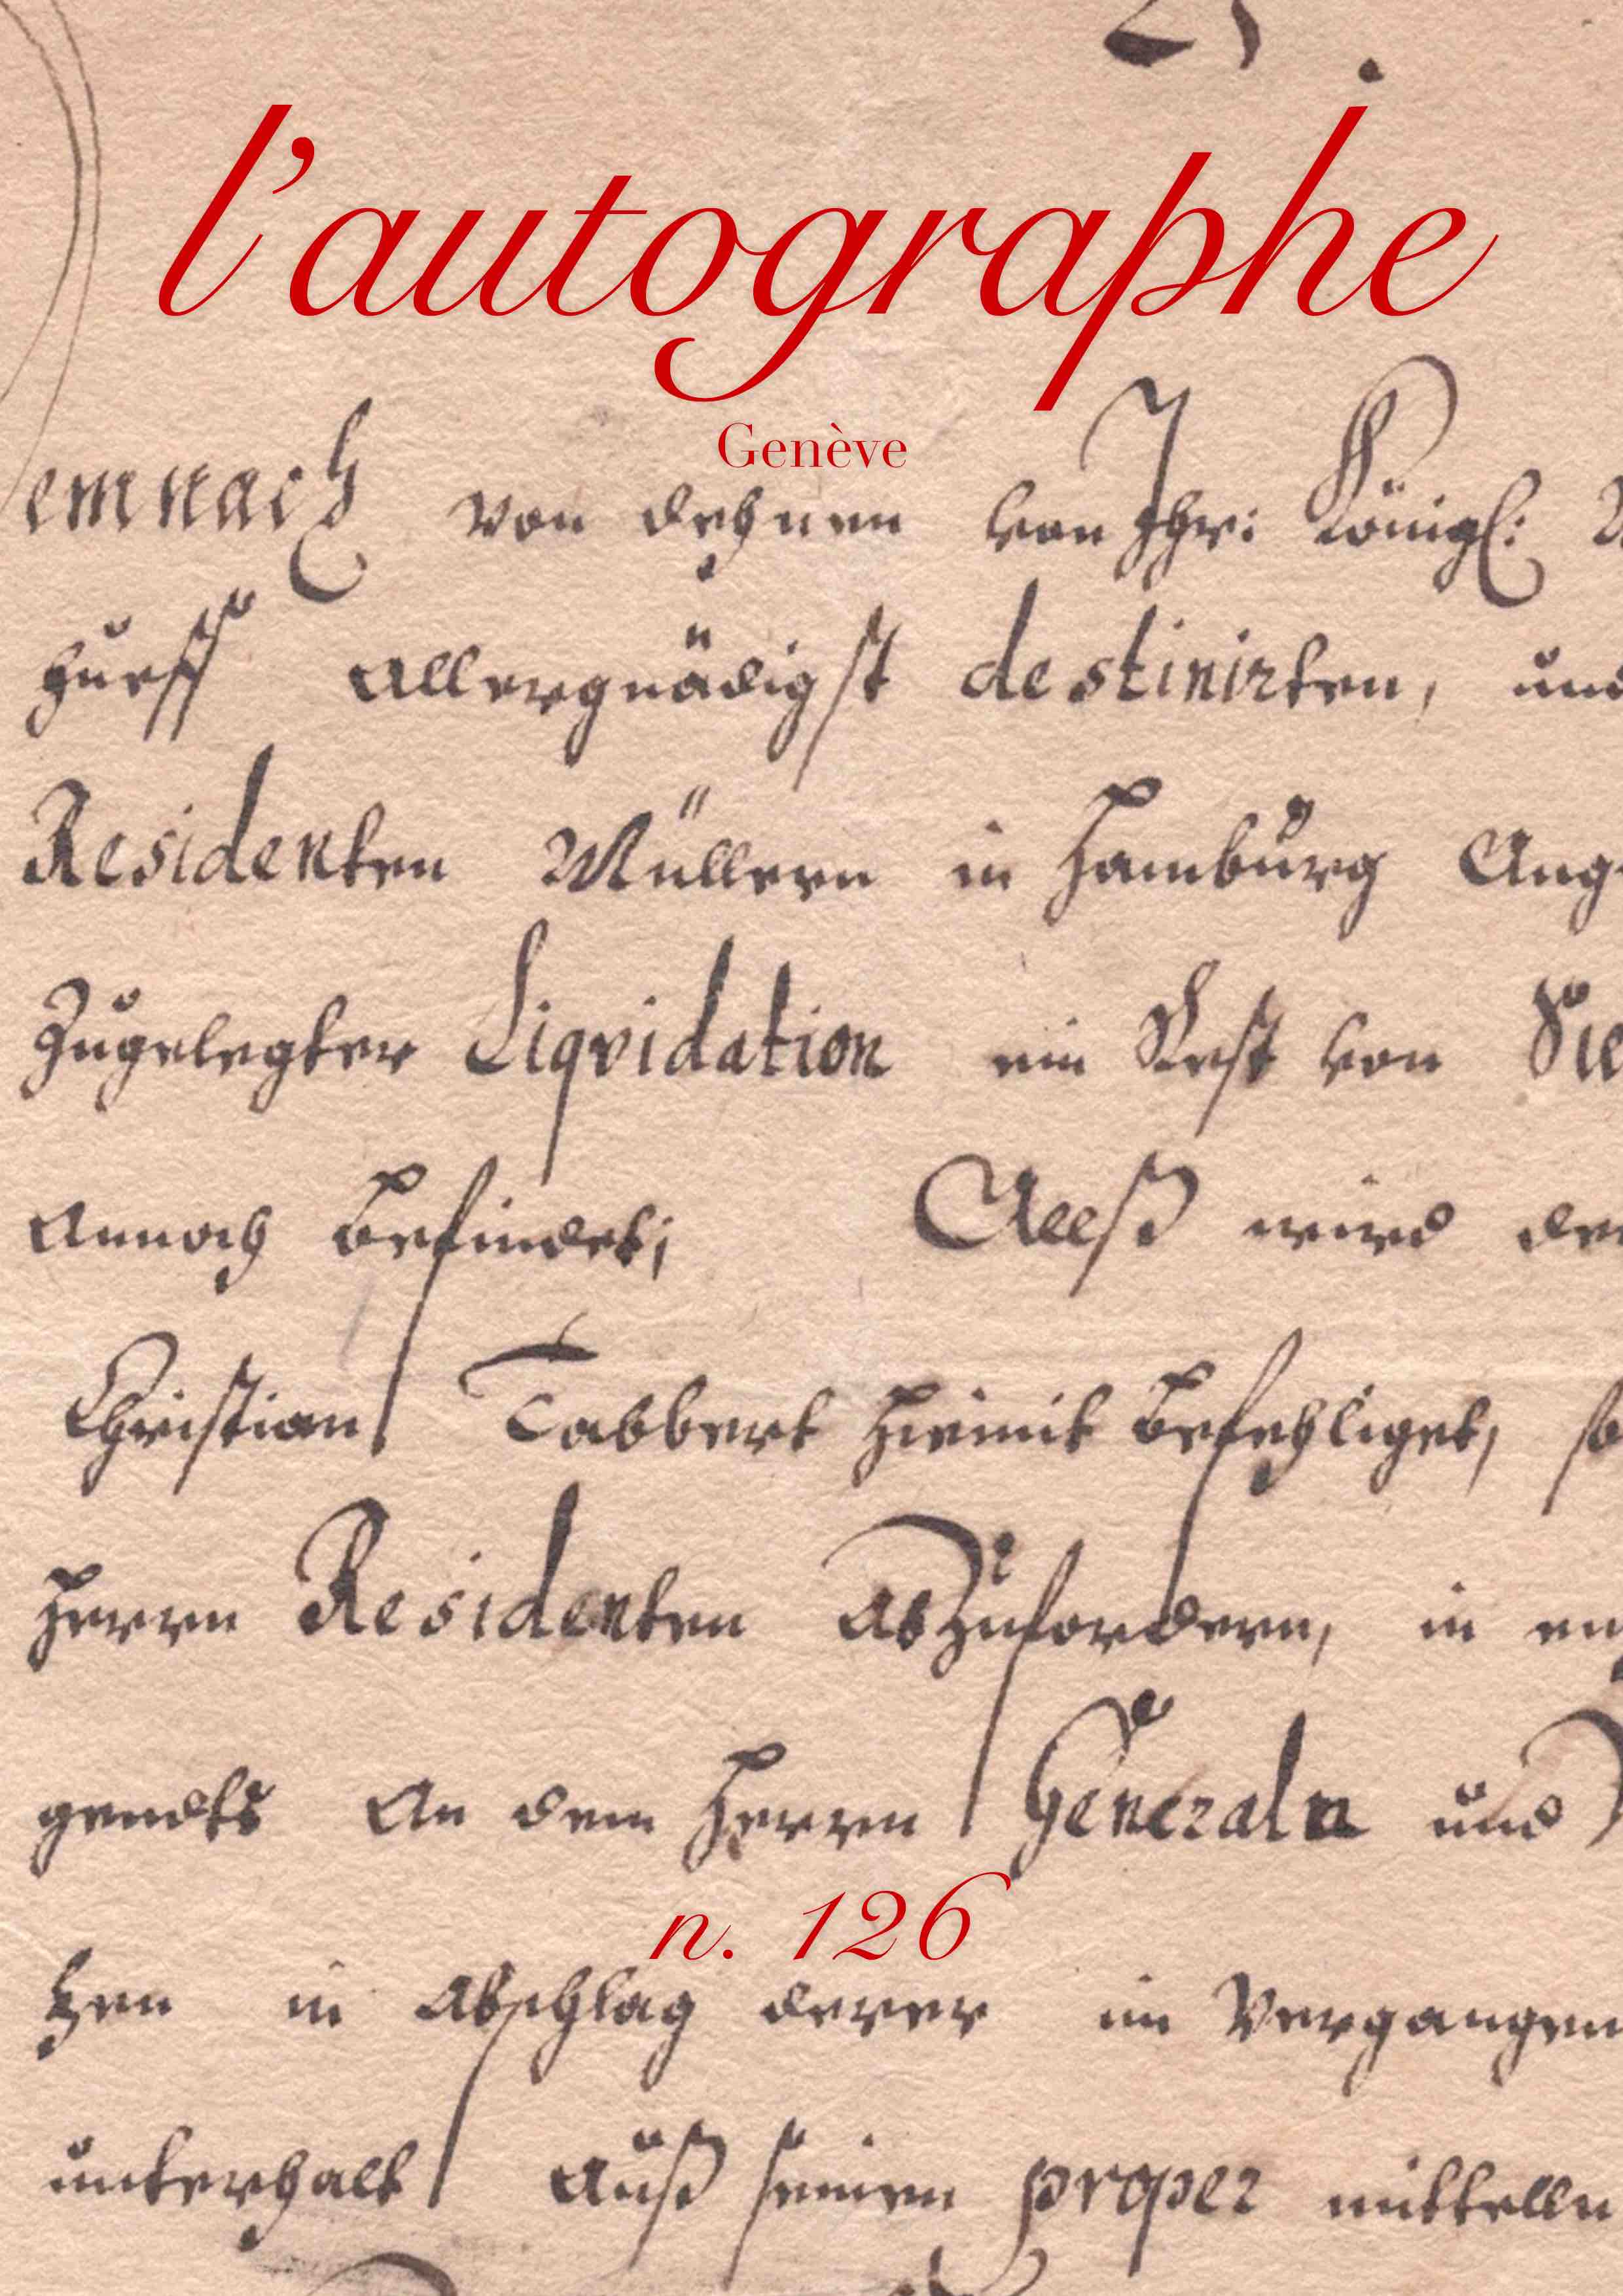 l'autographe
Genève
emnach von dehnen von Ihr: Königl:
hueff Allergnädigst destinirten, und
Residenten Müllern in Hamburg
Zugelegter Liqvidation ein Rest von
Annoch befindet;
Alß wird
Christian Tabbert hiemit befehliget,
Herrn Residenten Abzufordern, in
an dem Herrn Generaln und
n. 126
tzen in Abschlag derer im Vergangen
unterhalt Auß seinen proper mittelln